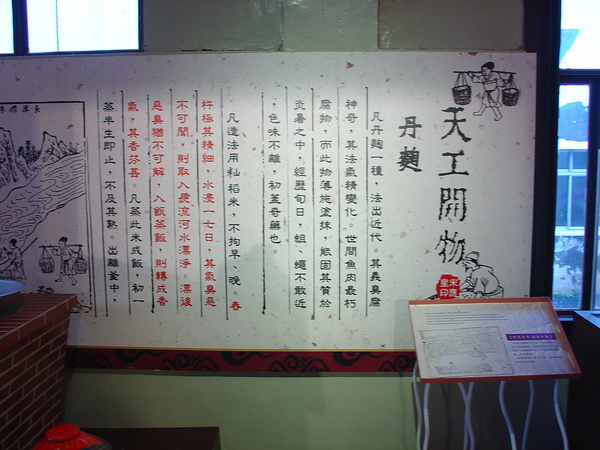 天工開物
宋應星印
丹麴
凡丹麴一種,法出近代。其義臭腐
神奇,其法氣精變化。世間魚肉最朽
腐物,而此物薄施塗抹,能固其質於
炎暑之中,經歷旬日,蛆、蠅不敢近
,色味不離,初蓋奇藥也。
凡造法用籼稻米,不拘早、晚。舂
杵極其精細,水浸一七日,其氣臭惡
不可聞,則取入長流河水漂淨。漂後
惡臭猶不可解,入甑蒸飯,則轉成香
氣,其香芬甚。凡蒸此米成飯,初一
蒸半生即止,不及其熟。出離釜中,
長流漂米